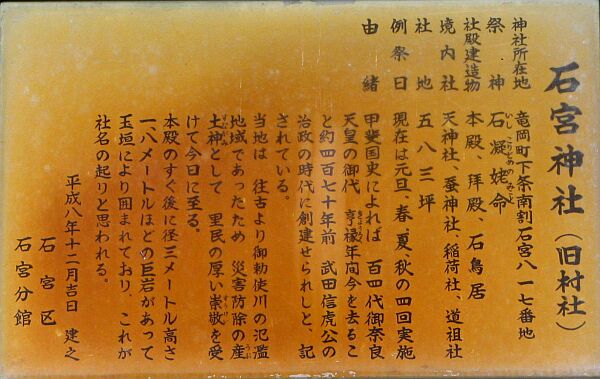 石宮神社（旧村社）
神社所在地 竜岡町下条南割石宮八一七番地
祭神 石凝姥命
いしこりとめのみこと
社殿建造物 本殿、拝殿、石鳥居
境内社 天神社、蚕神社、稲荷社、道祖社
社地 五八三坪
例祭日 現在は元旦、春、夏、秋の四回実施
由緒 甲斐国史によれば 百四代御奈良
天皇の御代 享禄年間今を去るこ
きょうろく
と約四百七十年前 武田信虎公の
治政の時代に創建せられしと、記
されている。
当地は 往古より御勅使川の氾濫
地域であったため 災害防除の産
土神として 里民の厚い崇敬を受
けて今日に至る。
本殿のすぐ後に径三メートル高さ
一八メートルほどの巨岩があって
玉垣により囲まれており、これが
社名の起りと思われる。
平成八年十二月吉日 建之
石宮区
石宮分館